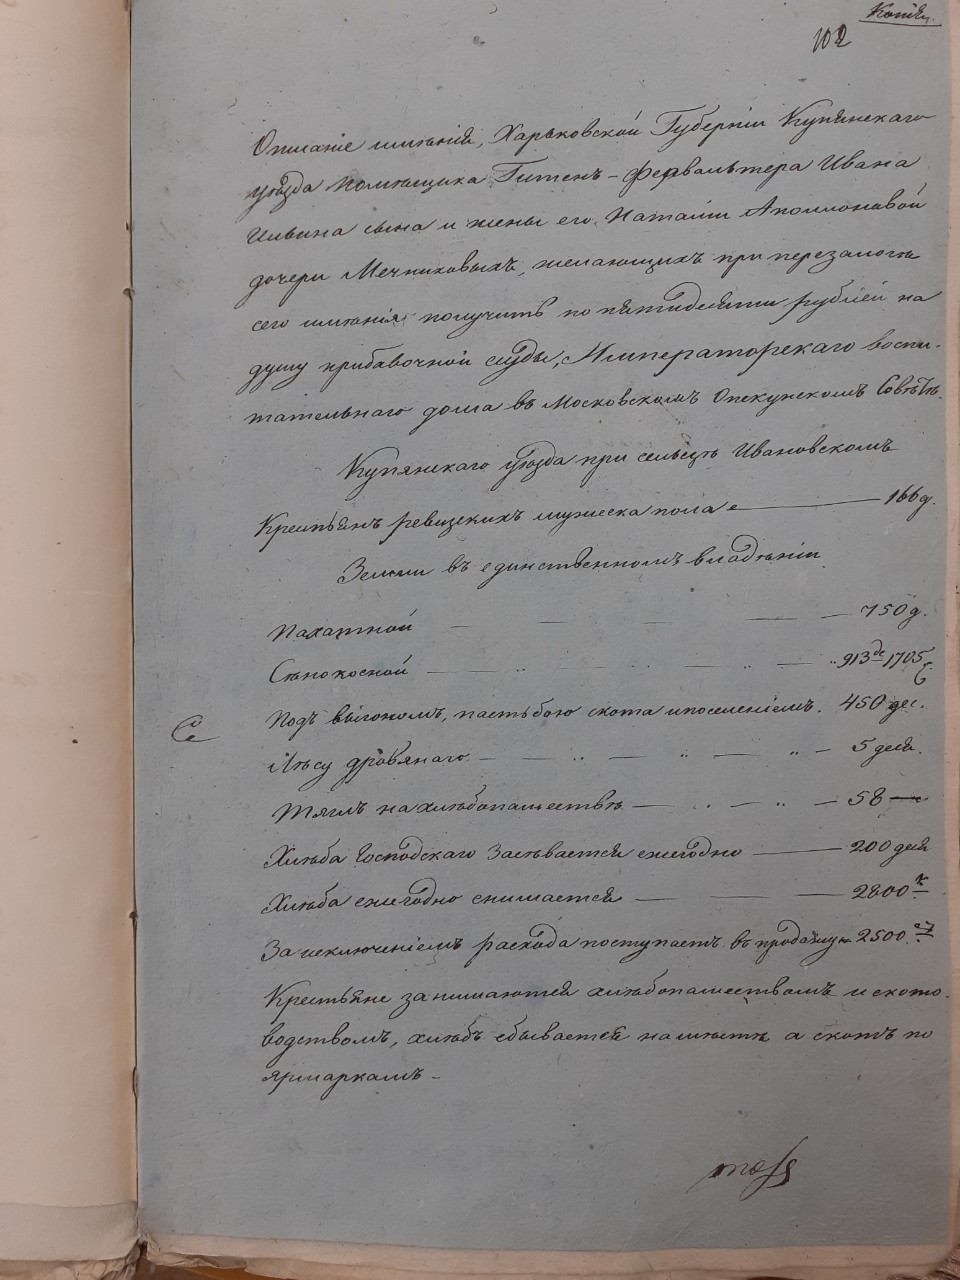 Копія.
102
Описаніе имѣнія, Харьковской Губерніи Купянскаго
уѣзда помѣщика Гитенъ-Фервальтера Ивана
Ильина сына и жены его Наталіи Аполлоновой
дочери Мечниковыхъ, желающихъ при перезалогѣ
сего имѣнія получить по пятидесяти рублей на
душу прибавочной суды, Императорскаго воспи-
тательнаго дома въ Московскомъ Опекунскомъ Совѣтѣ.
Купянскаго уѣзда при сельцѣ Ивановскомъ
Крестьянъ ревизскихъ мужеска пола — 166 д.
Земли въ единственномъ владѣніи
Пахатной — — — — 750 д.
Сѣнокосной — — .. — — .. — .. 913 де 1705 с.
Подъ выгономъ, пастьбою скота и поселеніемъ. 450 дес.
Лѣсу дровянаго — — .. — .. — .. — 5 деся.
Тяглъ на хлѣбопашествѣ — .. — .. — 58 —
Хлѣба Господскаго засѣвается ежегодно — 200 деся
Хлѣба ежегодно снимается — — — 2800 к
За исключеніемъ расхода поступаетъ въ продажу 2500
Крестьяне занимаются хлѣбопашествомъ и ското-
водствомъ, хлѣбъ сбывается на мѣстѣ а скотъ по
ярмаркамъ —